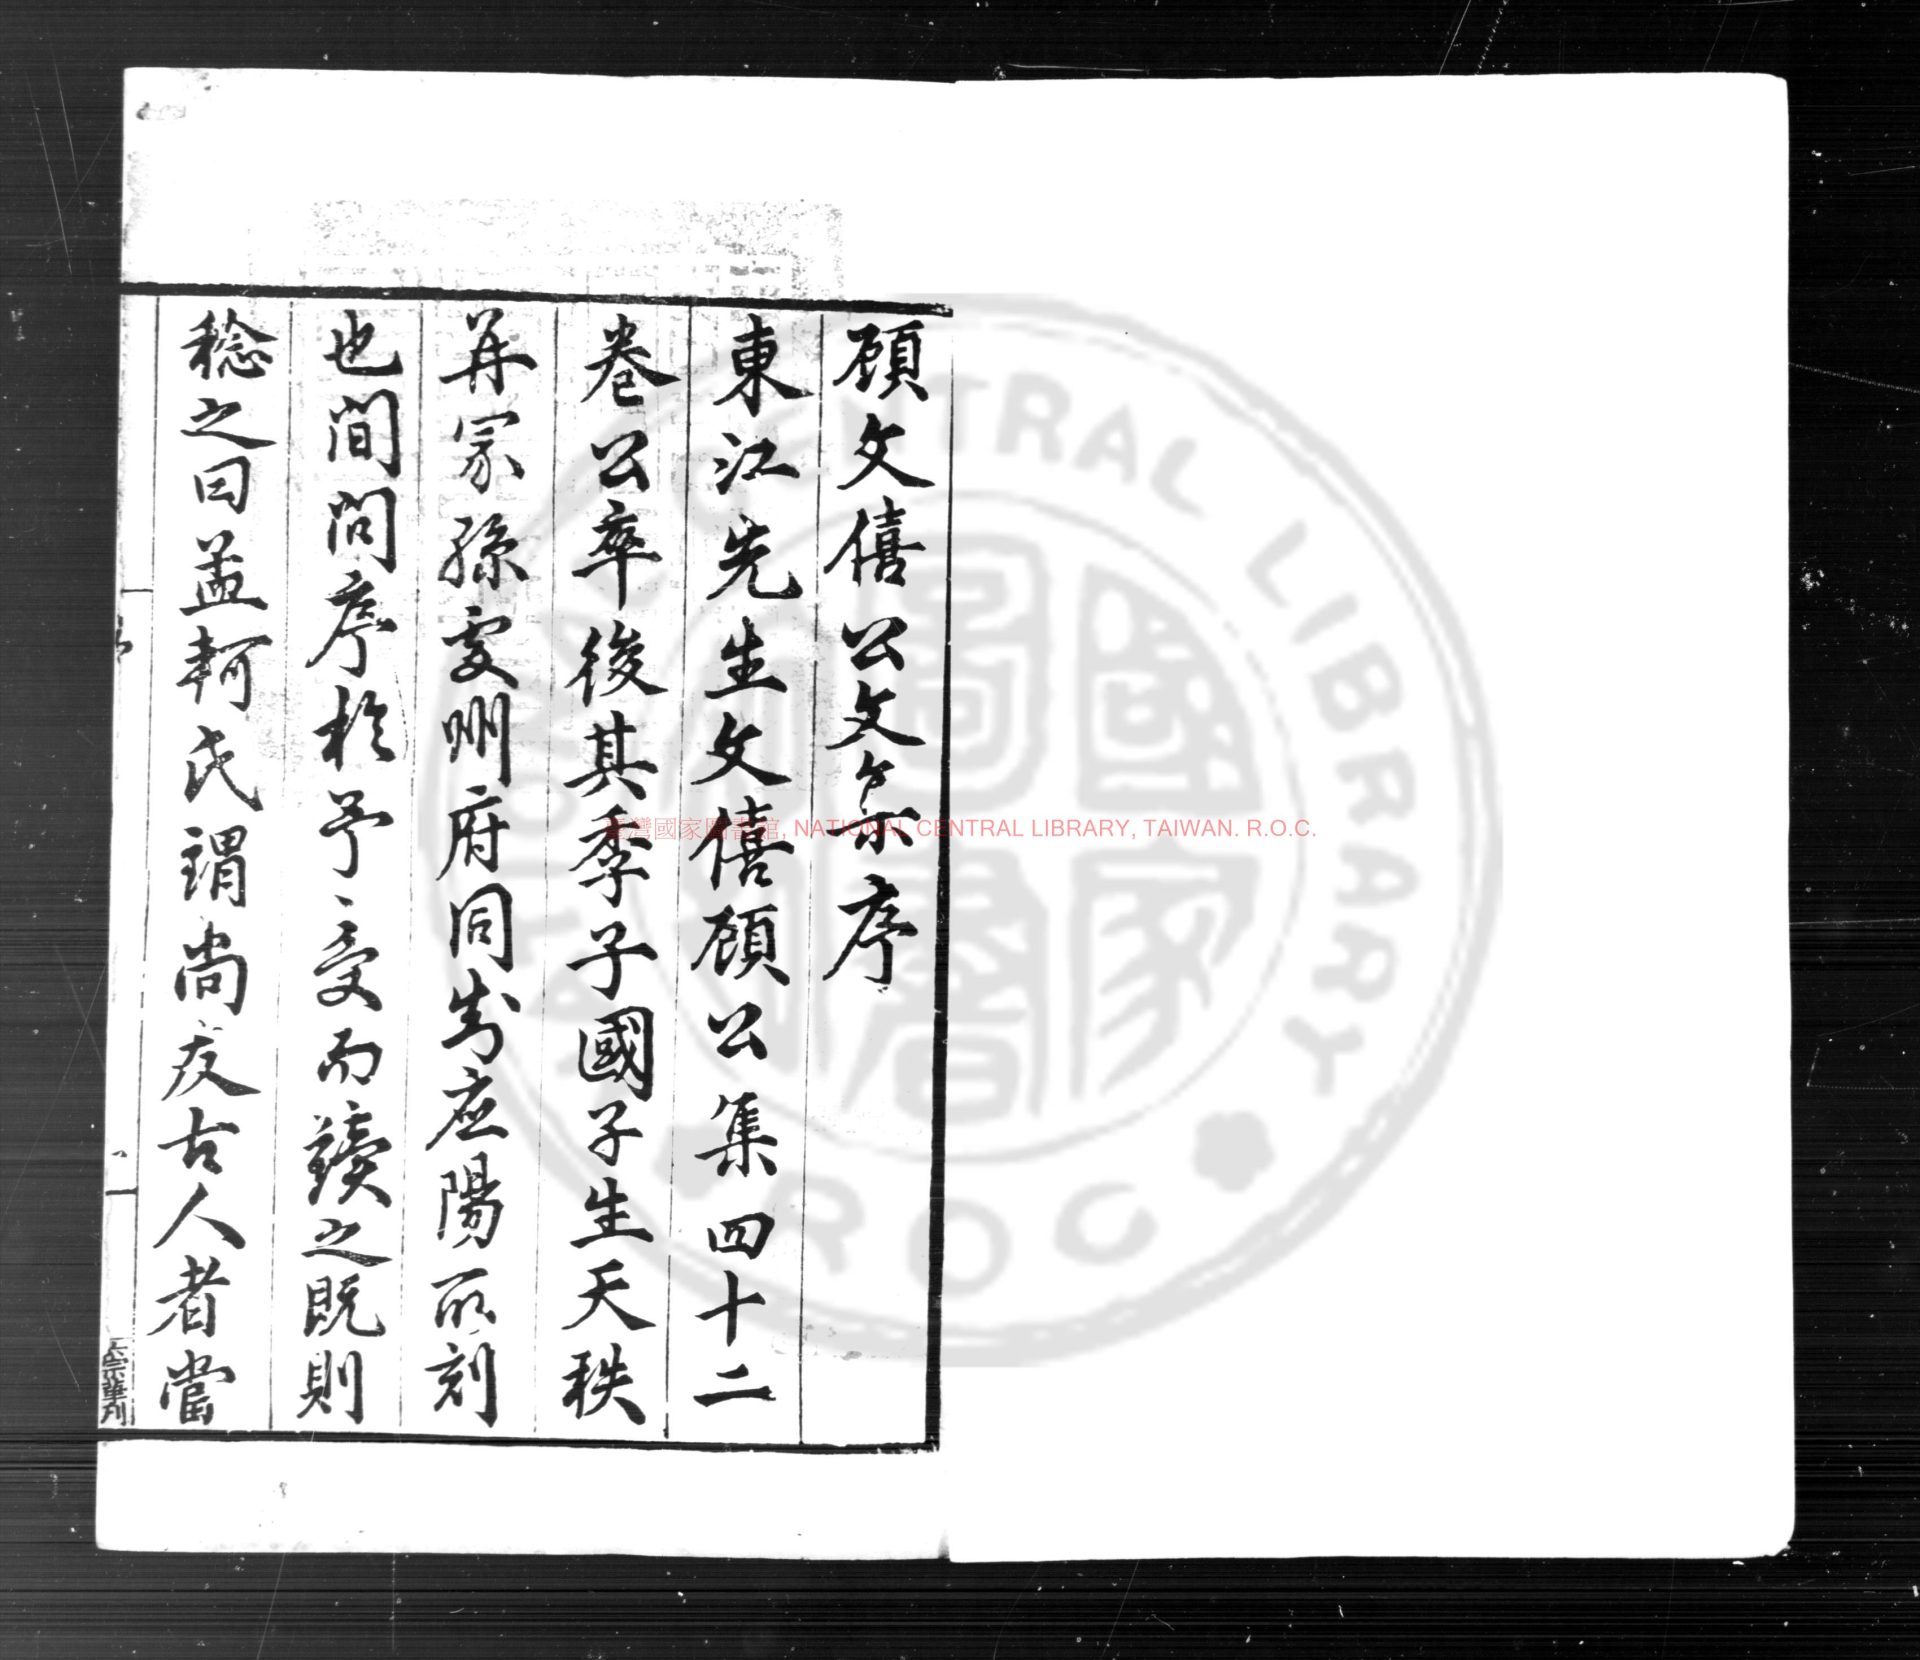 顧文僖公文集序
東江先生文僖顧公集四十二
卷公卒後其季子國子生天秩
并冢孫處州府同知應陽所刻
也間問序於予、受而讀之既則
稔之曰孟軻氏謂尚友古人者當
序
一
臺灣國家圖書館, NATIONAL CENTRAL LIBRARY, TAIWAN. R.O.C.
CENTRAL LIBRARY
R O C
國家圖書